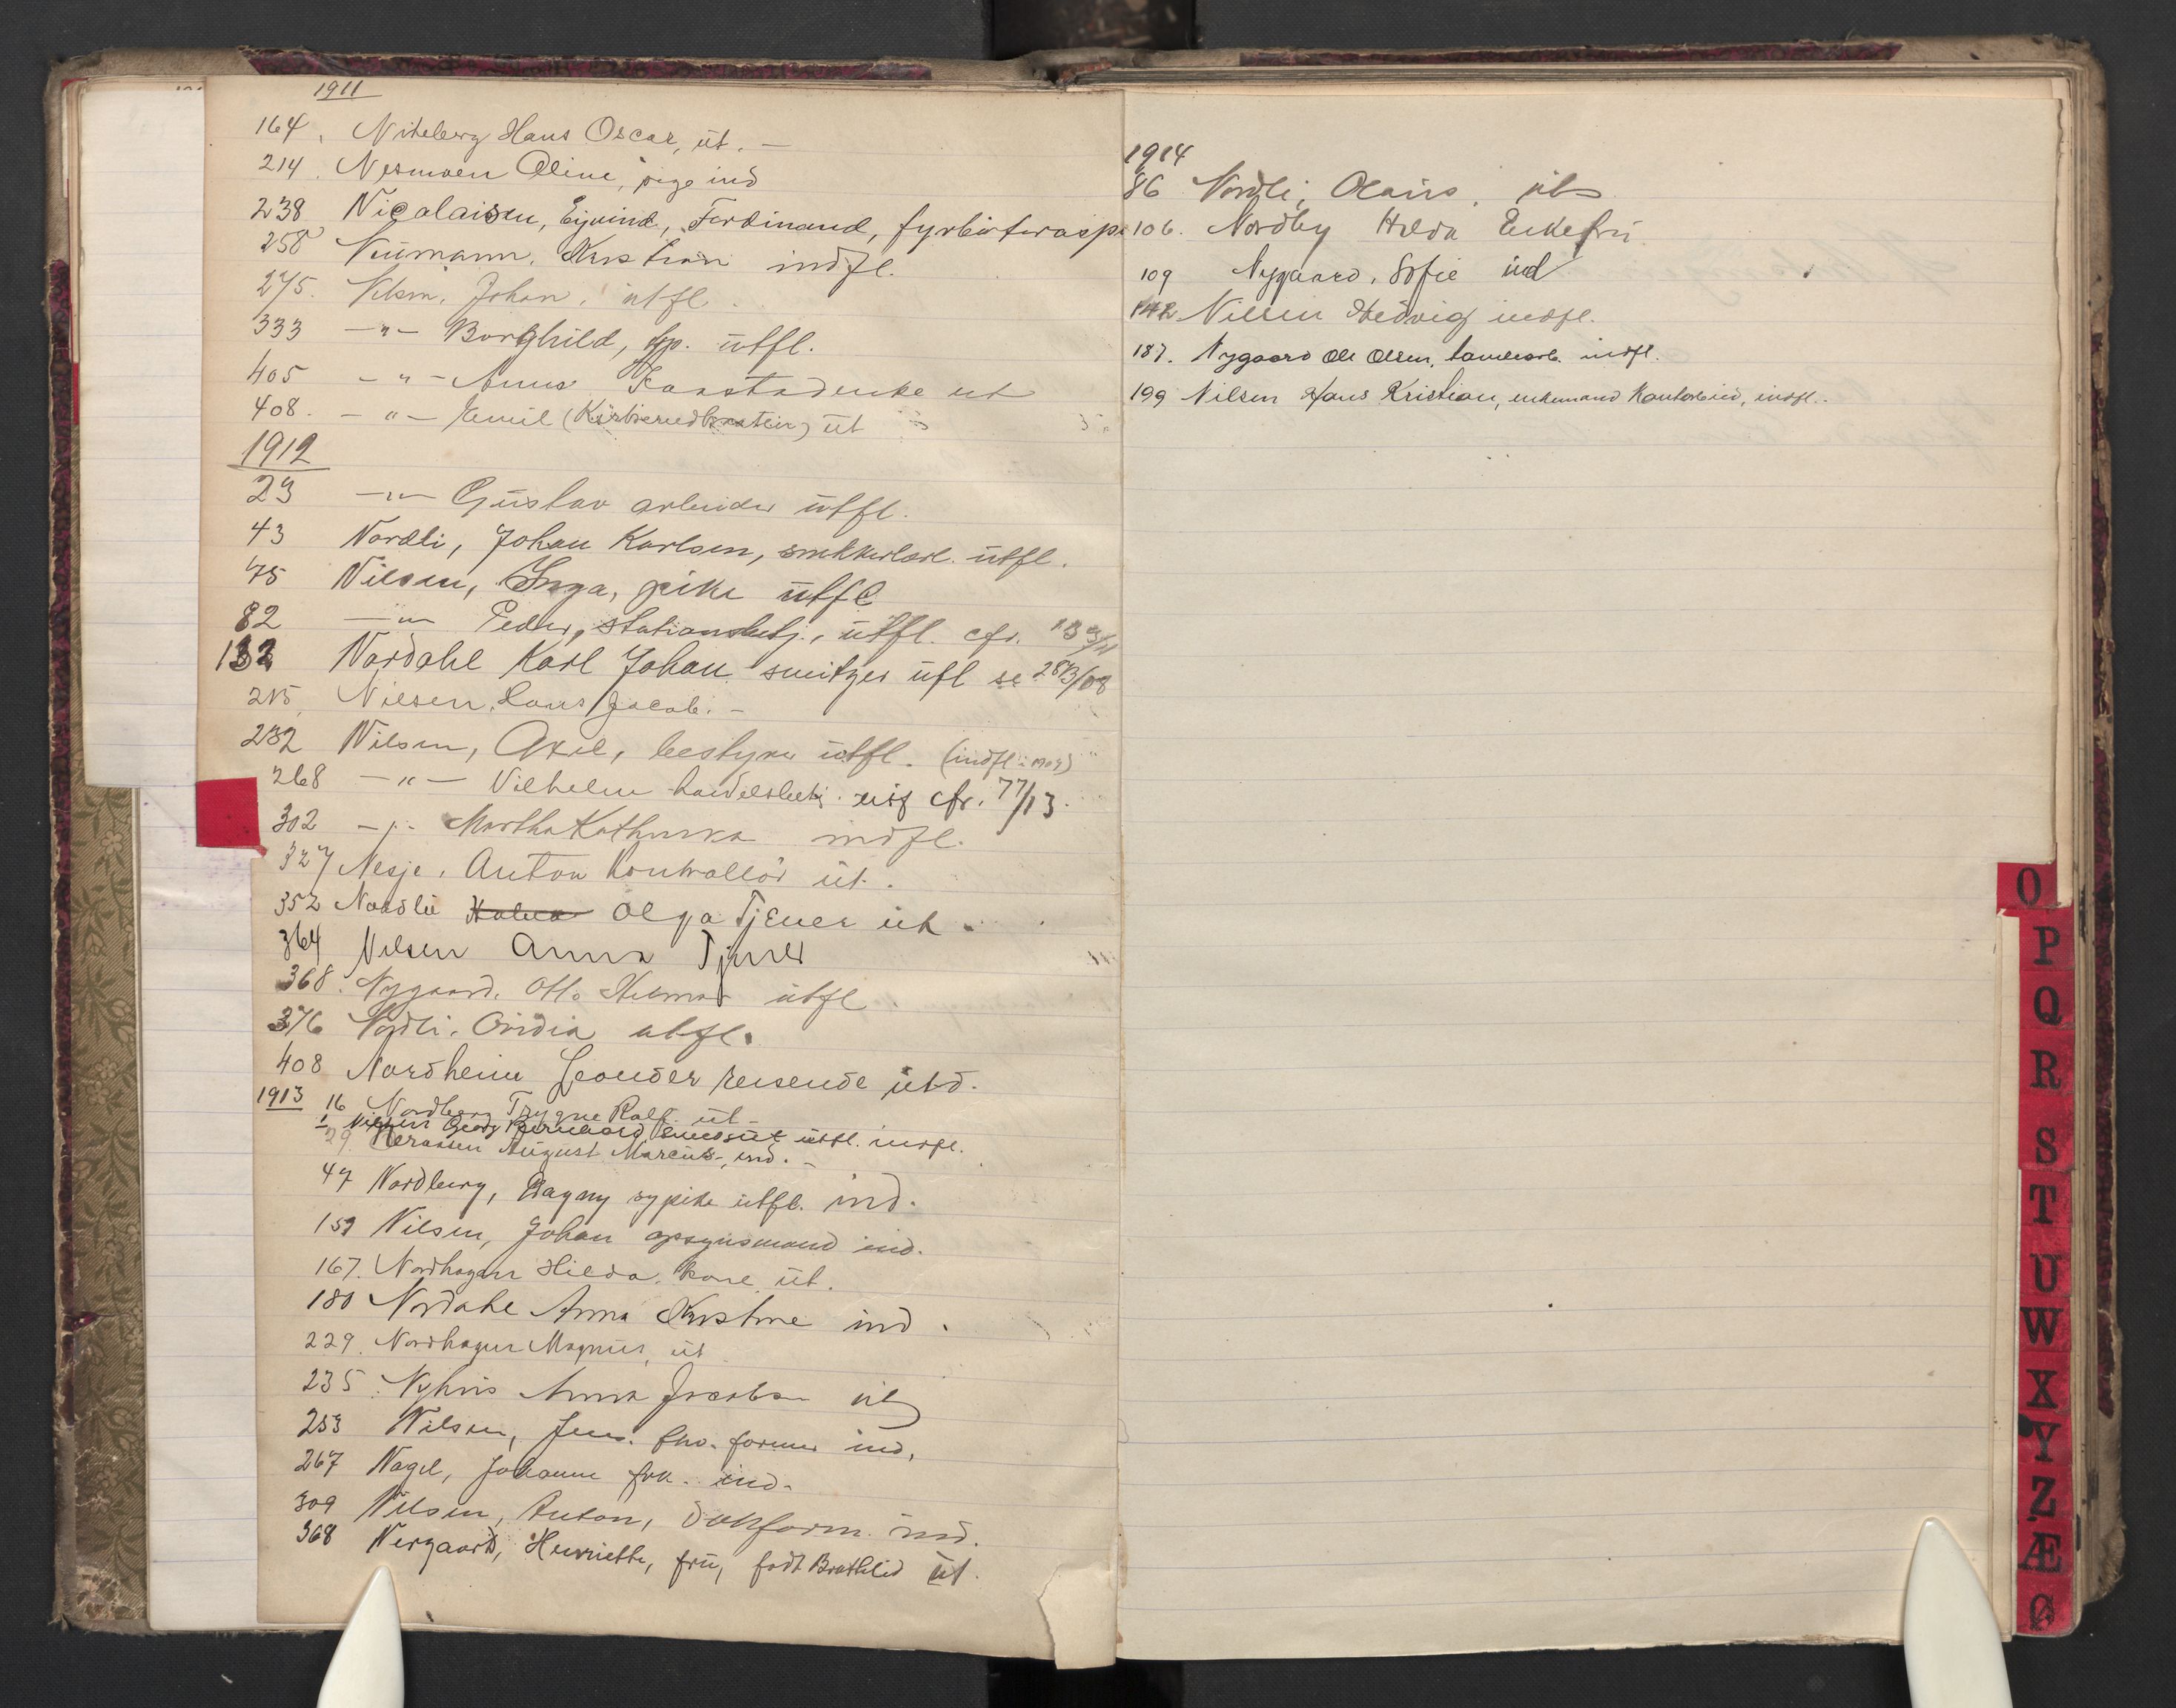 1911
164. Niteberg Hans Oscar, ut. —
214. Nesmoen Oline, pige ind
238 Nicolaisen, Eyvind, Ferdinand, fyrbøteraspi
258 Neumann, Kristian indfl.
275. Nilsen, Johan, utfl.
333 —"— Borghild, utfl.
405 —"— Anna enke ut
408. —"— Emil ut
1912
23 —"— Gustav arbeider utfl.
43 Nordli, Johan Karlsen, snekkerlærl. utfl.
75 Nilsen, Inga, pike utfl
82 —"— Peder, stationsbetj., utfl. cfr.
132 Nordahl Karl Johan snitger ufl se 283/08
215. Nilsen, Hans Jacob. —
232 Nilsen, Axel, bestyrer utfl. (indfl 1909)
268 —"— Vilhelm handelsbetj. utf cfr. 77/13.
302 —"— Martha Kathinka indfl.
327 Nesje, Anton Kontrollør ut.
352 Nordli Olga Tjener ut.
364 Nilsen Anna Tjener
368. Nygaard, Otto Hilmar utfl
376 Nordli, Ovidia utfl.
408 Nordheim Leonder reisende utd.
1913 16 Nordberg Trygve Ralf. ut —
1 Nielsen Georg Bernhard utfl. indfl.
29 August Marcus, ind. —
47 Nordberg, Dagny sypike utfl. ind.
159 Nilsen, Johan opsynsmand ind.
167. Nordhagen Hilda, kone ut.
180 Nordahl Anna Kristine ind.
229. Nordhagen Magnus, ut
235. Nyhus Anna Jacobs ut
253 Nilsen, Jens. fho. former ind.
267 Nagel, Johanne frk. ind.
309 Nilsen, Anton, ind.
368 Nergaard, Henriette, fru, født Brathlid ut.
1914
86 Nordli, Olaus, ut
106. Nordby Hilda Enkefru
109 Nygaard, Sofie ind
142 Nilsen Hedvig indfl.
187. Nygaard Ole Olsen, indfl.
199 Nilsen Hans Kristian, enkemand Kantorbud, indfl.
O
P
Q
R
S
T
U
W
X
Y
Z
Æ
Ø